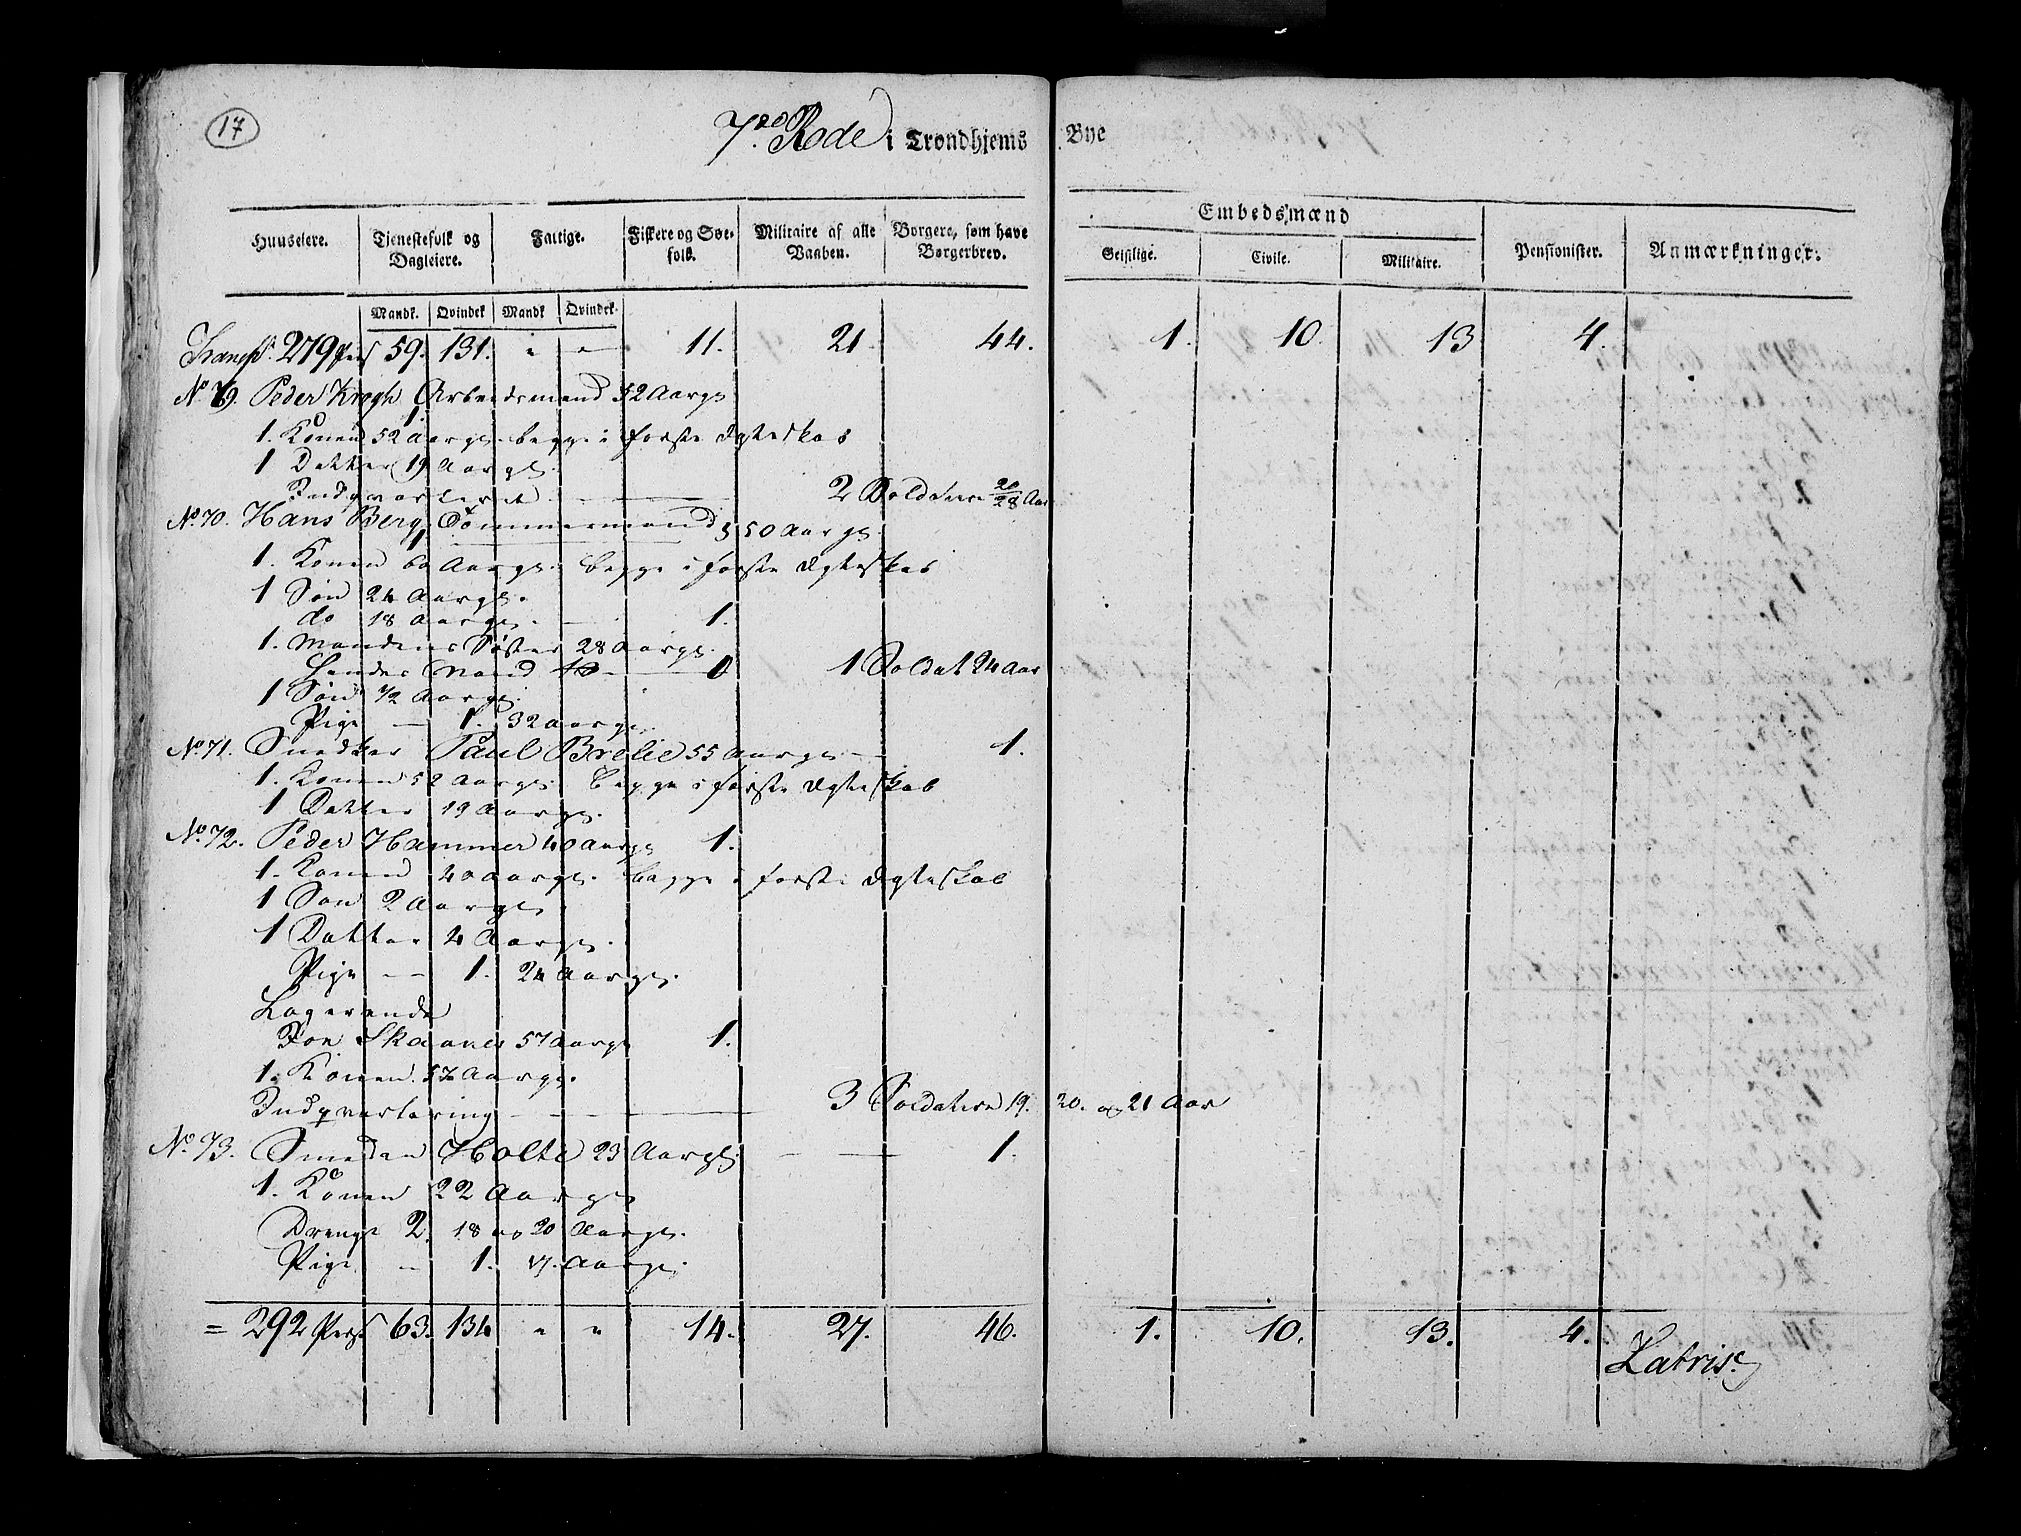 17
7de Rode i Trondhjems Bye
Embedsmænd
Huuseiere. Tjenestefolk og Dagleiere. Fattige. Fiskere og Søefolk. Militaire af alle Vaaben. Borgere, som have Borgerbrev. Geistlige. Civile. Militaire. Pensionister. Anmærkninger.
Mandk. Qvindek Mandk Qvindek.
Transpt. 279 Pers 59. 131. " " 11. 21. 44. 1. 10. 13 4.
No. 69. Peder Krogh Arbeidsmand 52 Aarge
1.
1. Konen 52 Aarge. begge i første Ægteskab
1 Datter 19 Aarge.
Indqvarteret 2 Soldater 20/28 Aar
No. 70. Hans Berg, Tømmermand, 50 Aarge
1.
1. Konen 60 Aarge. begge i første Ægteskab
1 Søn 24 Aarge.
do 18 Aarge. 1.
1. Mandens Søster 28 Aarge.
Hendes Mand 1 Soldat 24 Aar
1 Søn 1/2 Aarge
Pige — 1. 32 Aarge.
No. 71. Snedker Paul Brelie 55 Aarge — 1.
1. Konen 52 Aarge. begge i første Ægteskab
1 Datter 19 Aarge.
No. 72. Peder Hammer 40 Aarge 1.
1. Konen 40 Aarge. begge i første Ægteskab
1 Søn 2 Aarge
1 Datter 4 Aarge.
Pige — 1. 24 Aarge.
Logerende
Jon Skaanes 57 Aarge 1.
1. Konen 57 Aarge.
Indqvartering 3 Soldatere 19. 20. og 21 Aar
No. 73. Smeden Holte 23 Aarge. — — 1.
1. Konen 22 Aarge
Drenge 2. 18 og 20 Aarge.
Pige — 1. 17. Aarge.
= 292 Pers 63. 134 " " 14. 27. 46. 1. 10. 13. 4.
Latris.